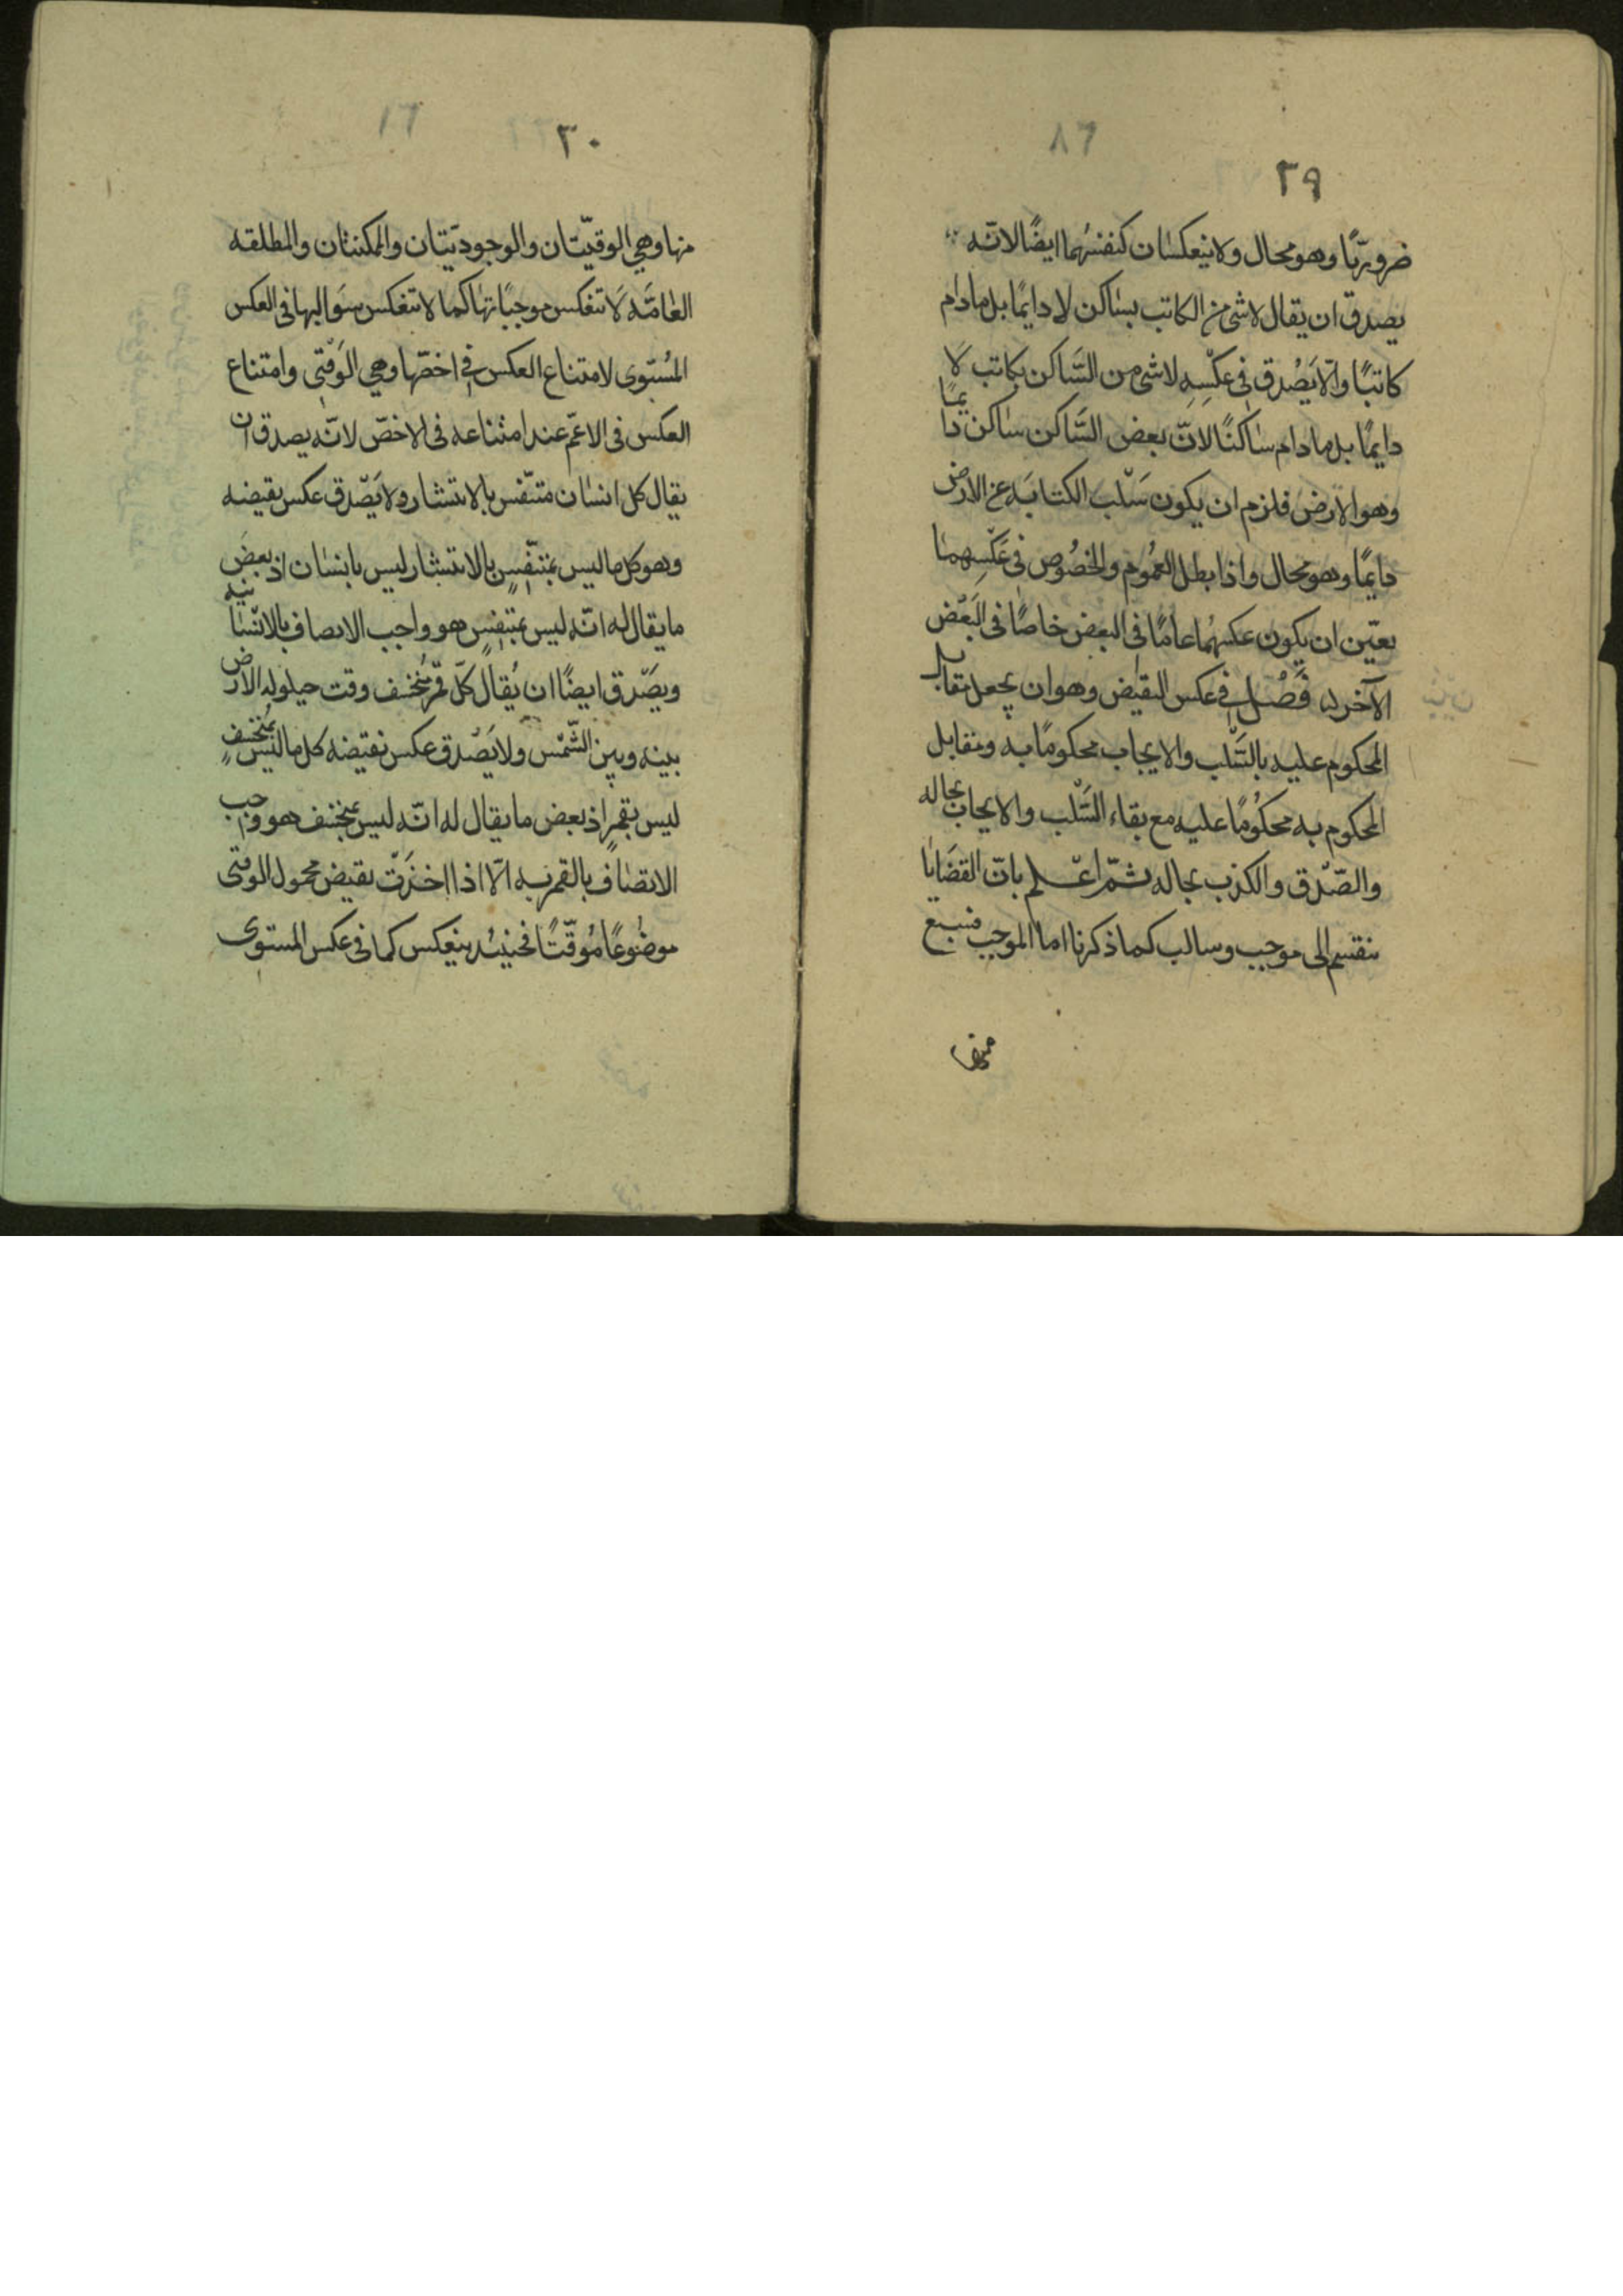 ٢٩
ضروريًّا وهو محال ولا ينعكسان كنفسهما ايضًا لانّه
يصدق ان يقال لا شئ من الكاتب بساكن لا دايمًا بل مادام
كاتبًا والّا يَصْدق فى عكسِهِ لا شئ من السّاكن بكاتب لَا
دايمًا بل مادام ساكنًا لانّ بعض السّاكن ساكن دايمًا
وهو الارض فلزم ان يكون سَلْب الكتابَه عن الارض
دايمًا وهو محال واذا بطل العمُوم والخصُوص فى عَكسِهما
تعيّن ان يكون عكسهُما عامًا فى البعض خاصًا فى البَعْض
الآخر فَصْل فى عكس النقيض وهو ان يجعل مقابل
المحكوم عليه بالسَّلب والايجاب محكومًا به ومقابل
المحكوم به محكُومًا عليه مع بقاء السَّلْب والايجاب بحاله
والصّدق والكذب بحاله ثمّ اعْلم بانّ القضَايا
منقسم الى موجب وسالب كما ذكرنا اما الموجب فسبع
منها
٣٠
منها وهي الوقتيّتان والوجوديّتان والممكنتان والمطلقه
العَامَّه لَا تنعَكس موجبَاتهَا كما لا تنعكس سَوالبها فى العكس
المُستوى لامتناع العكس فى اخصّها وهي الوَقْتى وامتناع
العكس فى الاعمّ عند امتناعه فى الاخصّ لانّه يصدق ان
يقال كل انسَان متنفّس بالانتشار ولا يَصْدق عكس نقيضه
وهو كل ما ليس بمتنفّسٍ بالانتشار ليس بانسَان اذ بعض
ما يقال له انّه ليس بمتنفسٍ هو واجب الاتصاف بالانسَانيه
ويصَدق ايضًا ان يُقال كلّ قمرٌ منْخسف وقت حيلوله الارض
بينه وبين الشّمْس ولا يَصْدق عكس نقيضه كل ما ليس بمُنْخسفٍ
ليس بقمرٍ اذ بعض ما يقال له انّه ليس بمنخسف هو واجب
الاتصَاف بالقمريه الّا اذا اخذَت نقيض محمول الوقتى
موضُوعًا مُوقّتًا فحينئذ ينعكس كما فى عكس المستوى